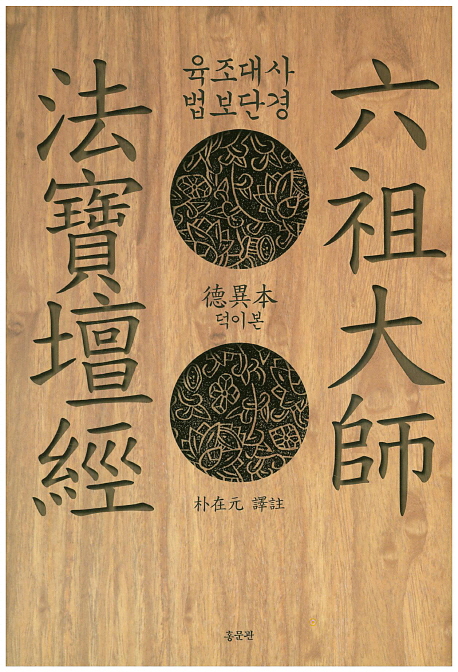 六祖大師
法寶壇經
육조대사
법보단경
德異本
덕이본
朴在元 譯註
홍문관